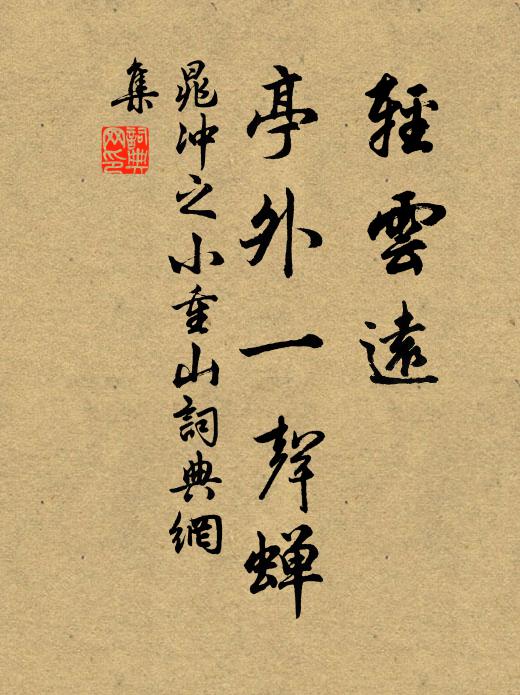 輕雲遠
亭外一聲蟬
晁沖之小重山詞典網
集
詞典
网印